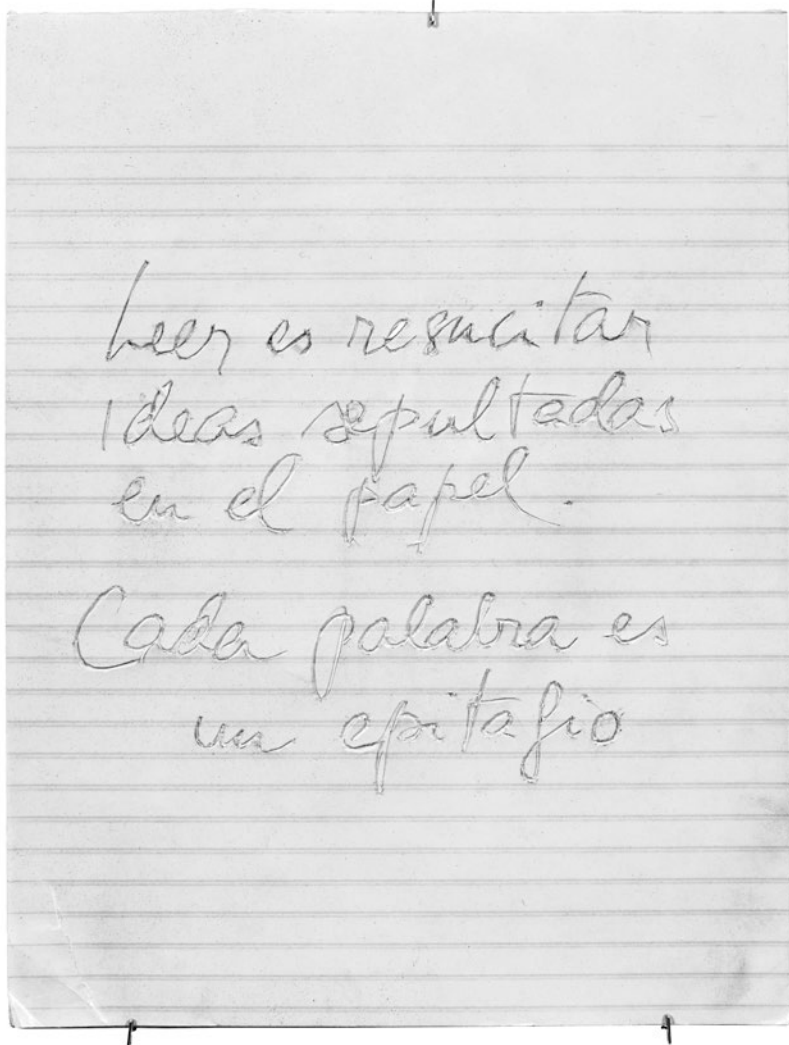 Leer es resucitar
ideas sepultadas
en el papel.
Cada palabra es
un epitafio